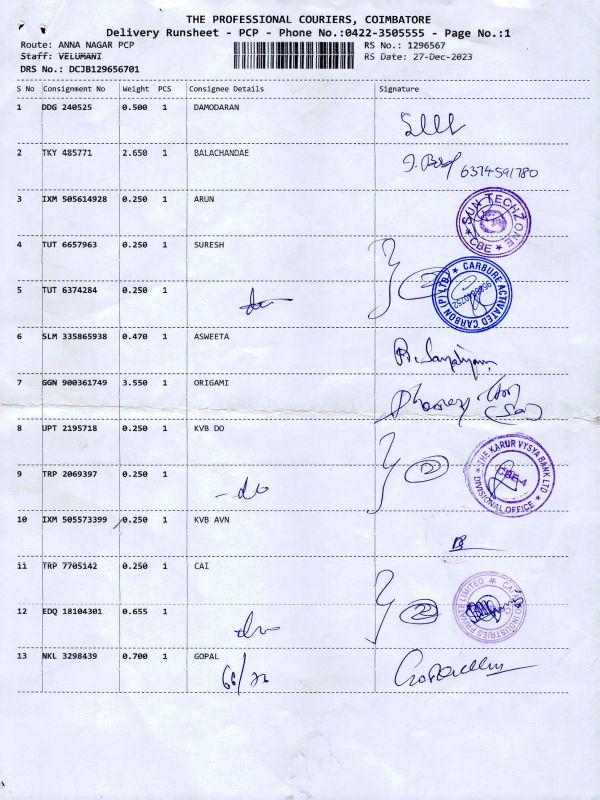 THE PROFESSIONAL COURIERS, COIMBATORE
Delivery Runsheet - PCP - Phone No.:0422-3505555 - Page No.:1
Route: ANNA NAGAR PCP RS No.: 1296567
Staff: VELUMANI RS Date: 27-Dec-2023
DRS No.: DCJB129656701
S No Consignment No Weight PCS Consignee Details Signature
1 DDG 240525 0.500 1 DAMODARAN
2 TKY 485771 2.650 1 BALACHANDAE
6374591780
3 IXM 505614928 0.250 1 ARUN
SUN TECHZONE
CBE
4 TUT 6657963 0.250 1 SURESH
2
CARBURE ACTIVATED CARBON (P) LTD
5 TUT 6374284 0.250 1
6 SLM 335865938 0.470 1 ASWEETA
7 GGN 900361749 3.550 1 ORIGAMI
8 UPT 2195718 0.250 1 KVB DO
2
THE KARUR VYSYA BANK LTD
CBE-4
DIVISIONAL OFFICE
9 TRP 2069397 0.250 1
-do
10 IXM 505573399 0.250 1 KVB AVN
11 TRP 7705142 0.250 1 CAI
2
INDUSTRIES PRIVATE LIMITED
12 EDQ 18104301 0.655 1
13 NKL 3298439 0.700 1 GOPAL